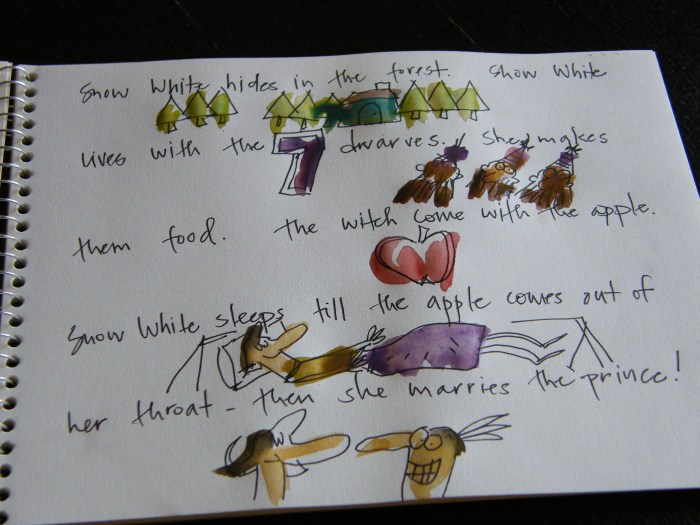 Snow White hides in the forest. Snow White
lives with the 7 dwarves. She makes
them food. the witch come with the apple.
Snow White sleeps till the apple comes out of
her throat - then she marries the prince!